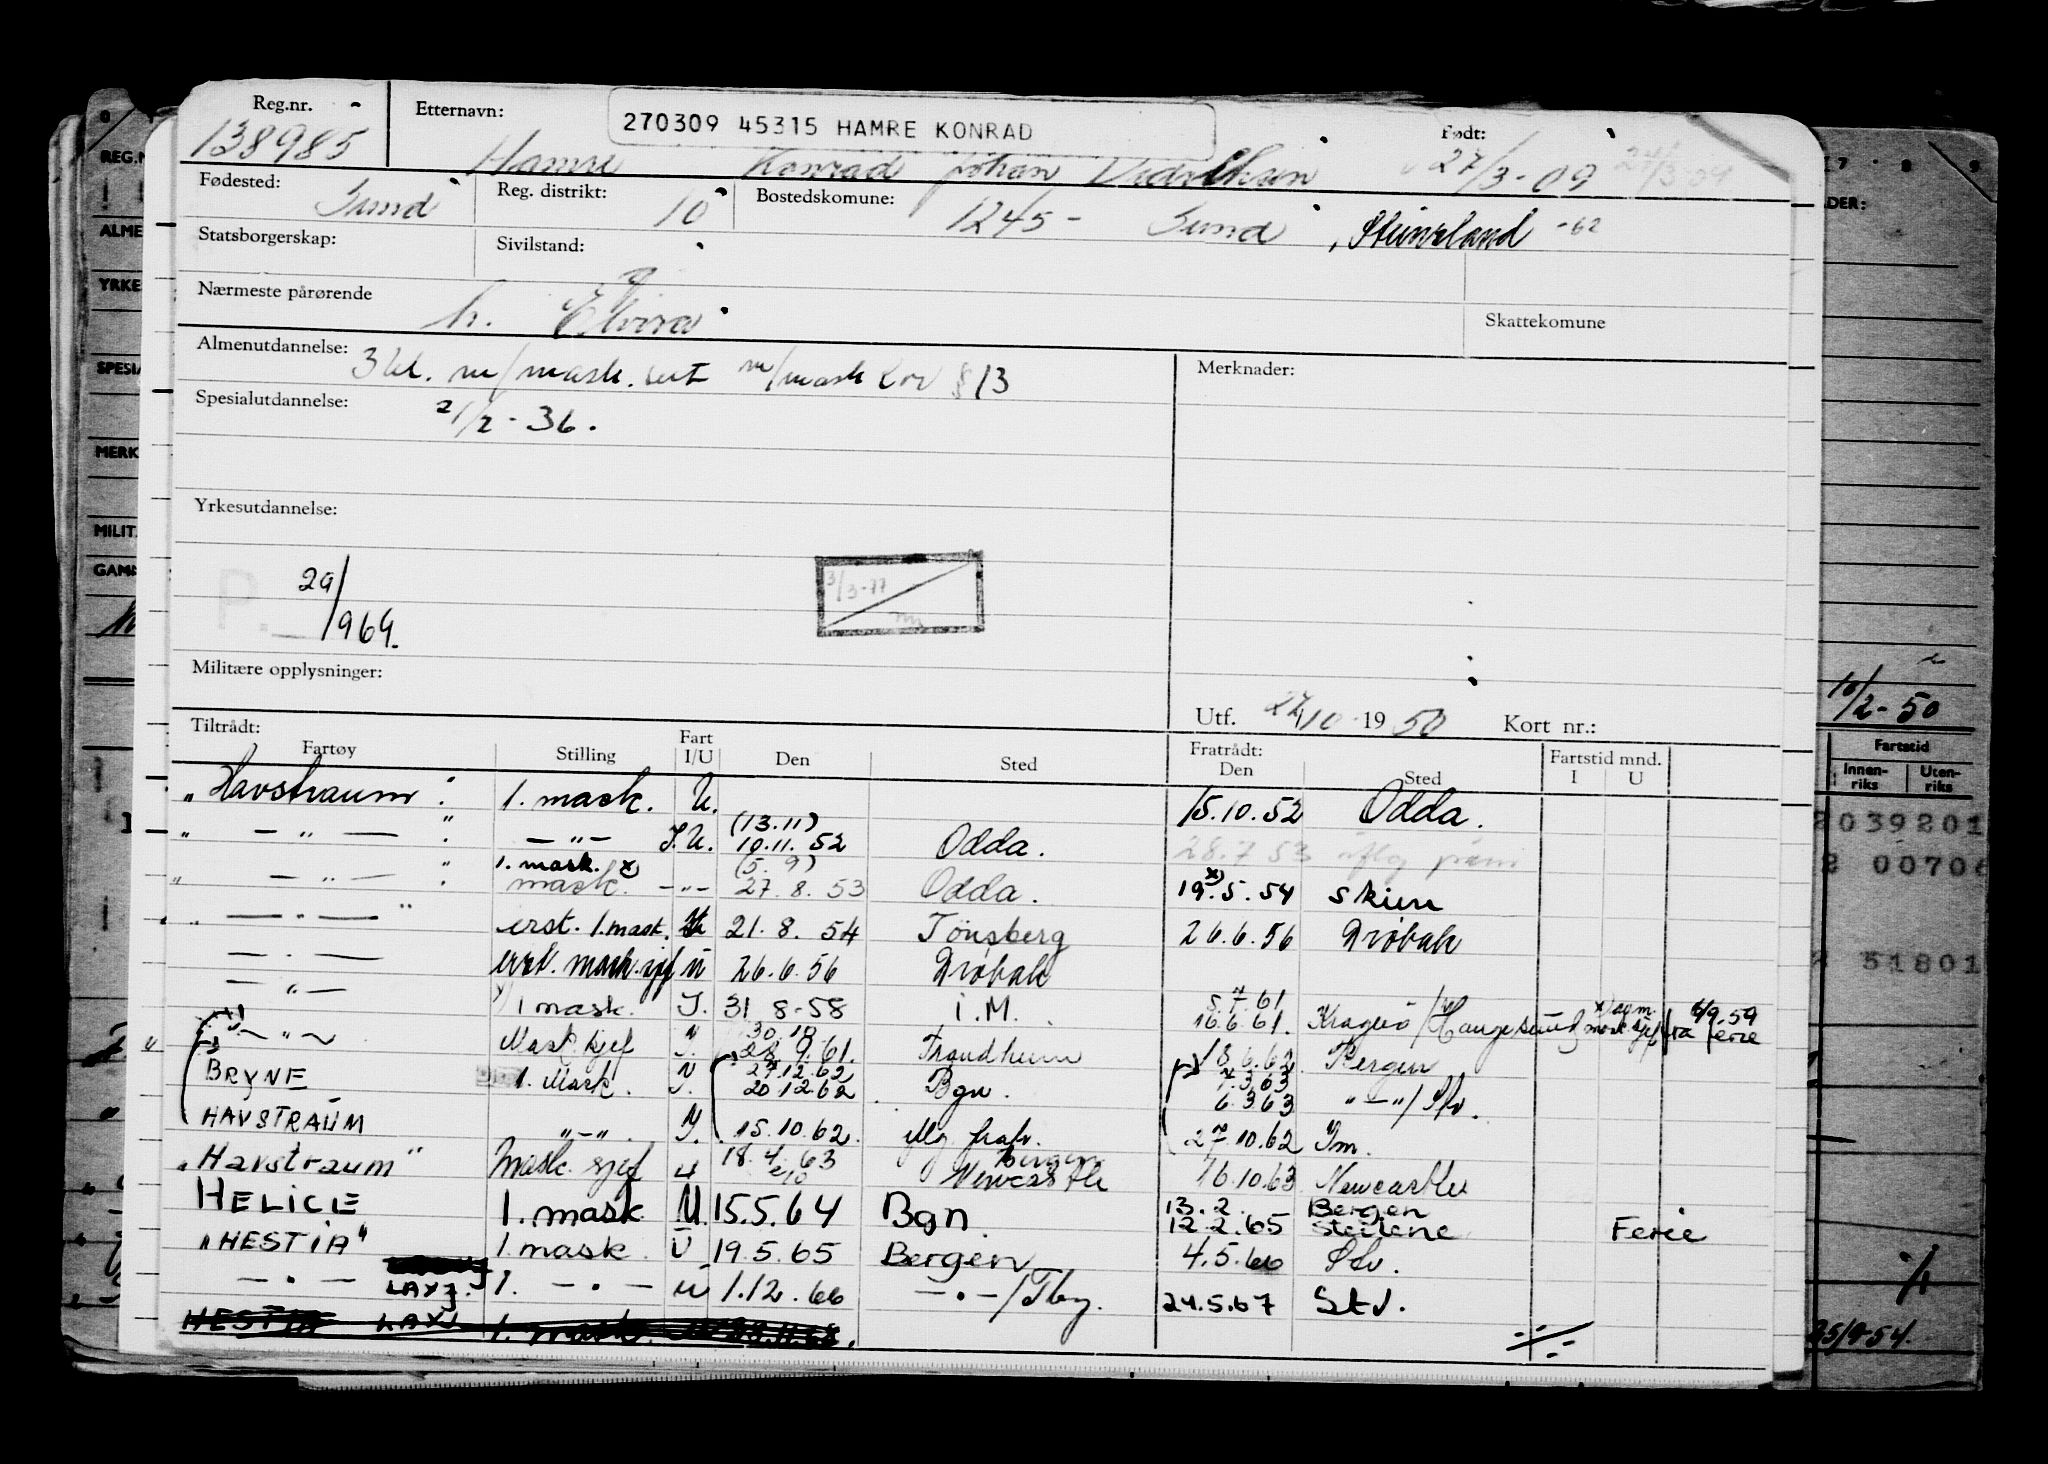 Reg.nr. Etternavn: 270309 45315 HAMRE KONRAD Født:
138985 Hamre Konrad Johan 27/3-09 24/3 09
Fødested: Sund Reg. distrikt: 10 Bostedskomune: 1245- Sund, Steinsland -62
Statsborgerskap: Sivilstand: g
Nærmeste pårørende h. Elvira Skattekomune
Almenutdannelse: 3 kl. m/mask. sert m/mask kor § 13 Merknader:
Spesialutdannelse: 21/2-36.
Yrkesutdannelse:
P. 29/1969.
3/3-77
Militære opplysninger:
Utf. 27/10-1950 Kort nr.:
Tiltrådt: Fratrådt:
Fartøy Stilling Fart I/U Den Sted Den Sted Fartstid mnd. I U
"Havstraum" 1. mask. U. 15.10.52 Odda.
" — " — " — " — I.U. (13.11) 10.11.52 Odda. 28.7 53
" — " — " 1. mask. x) mask. — " — (5. 9) 27.8.53 Odda. 19.x)5.54 Skien
" — " — " erst. 1. mask. U 21.8.54 Tönsberg 26.6.56 Drøbak
— " — erst. mask.sjef U 26.6.56 Drøbak
— " — x) 1 mask. I. 31 8-58 i.M. 5.7.61 16.6.61. Kragerø/Haugesund x) som mask sjef fra 6/9.59 ferie
" — " — Mask sjef I. 9.61. Trondheim 18.6.62 Bergen
BRYNE 1. Mask. I. 27.12.62 20.12.62 Bgn. 7.3.63 6.3.63 " — "/
HAVSTRAUM " — " I. 15.10.62. 27.10.62 Im.
"Havstraum" Mask. sjef U 18.4.63 Bergen Newcastle 16.10.63 Newcastle
HELICE 1. mask U. 15.5.64 Bgn 13.2. 12.2.65 Bergen Steilene Ferie
"HESTIA" 1. mask. U 19.5.65 Bergen 4.5.66
— " — LAY 1. — " — U 1.12.66 — " —/Tbg. 24.5.67 Stv.
HESTIA LAY 1. mask.
10/2-50
Fartstid
Innenriks Utenriks
039201
00706
51801
25/9-54.